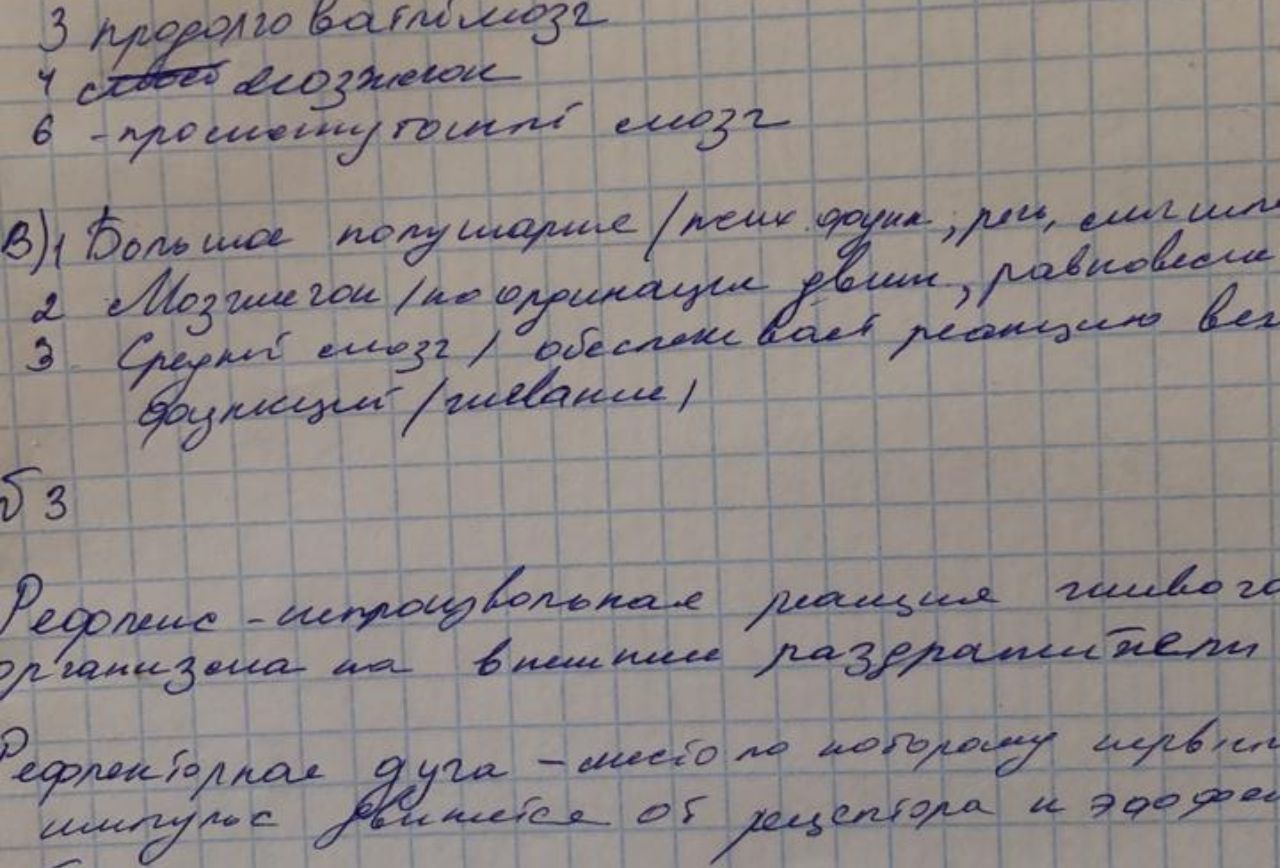 3 продолговатый мозг
4 мозжечок
6 - промежуточный мозг
В) 1 Большое полушарие / псих. функ, речь,
2 Мозжечок / координация движ, равновесие
3 Средний мозг / обеспечивает реакцию вег
функций / жевание /
3
Рефлекс - непроизвольная реакция живого
организма на внешние раздражители
Рефлекторная дуга - место по которому нервн
импульс движется от рецептора к эффек